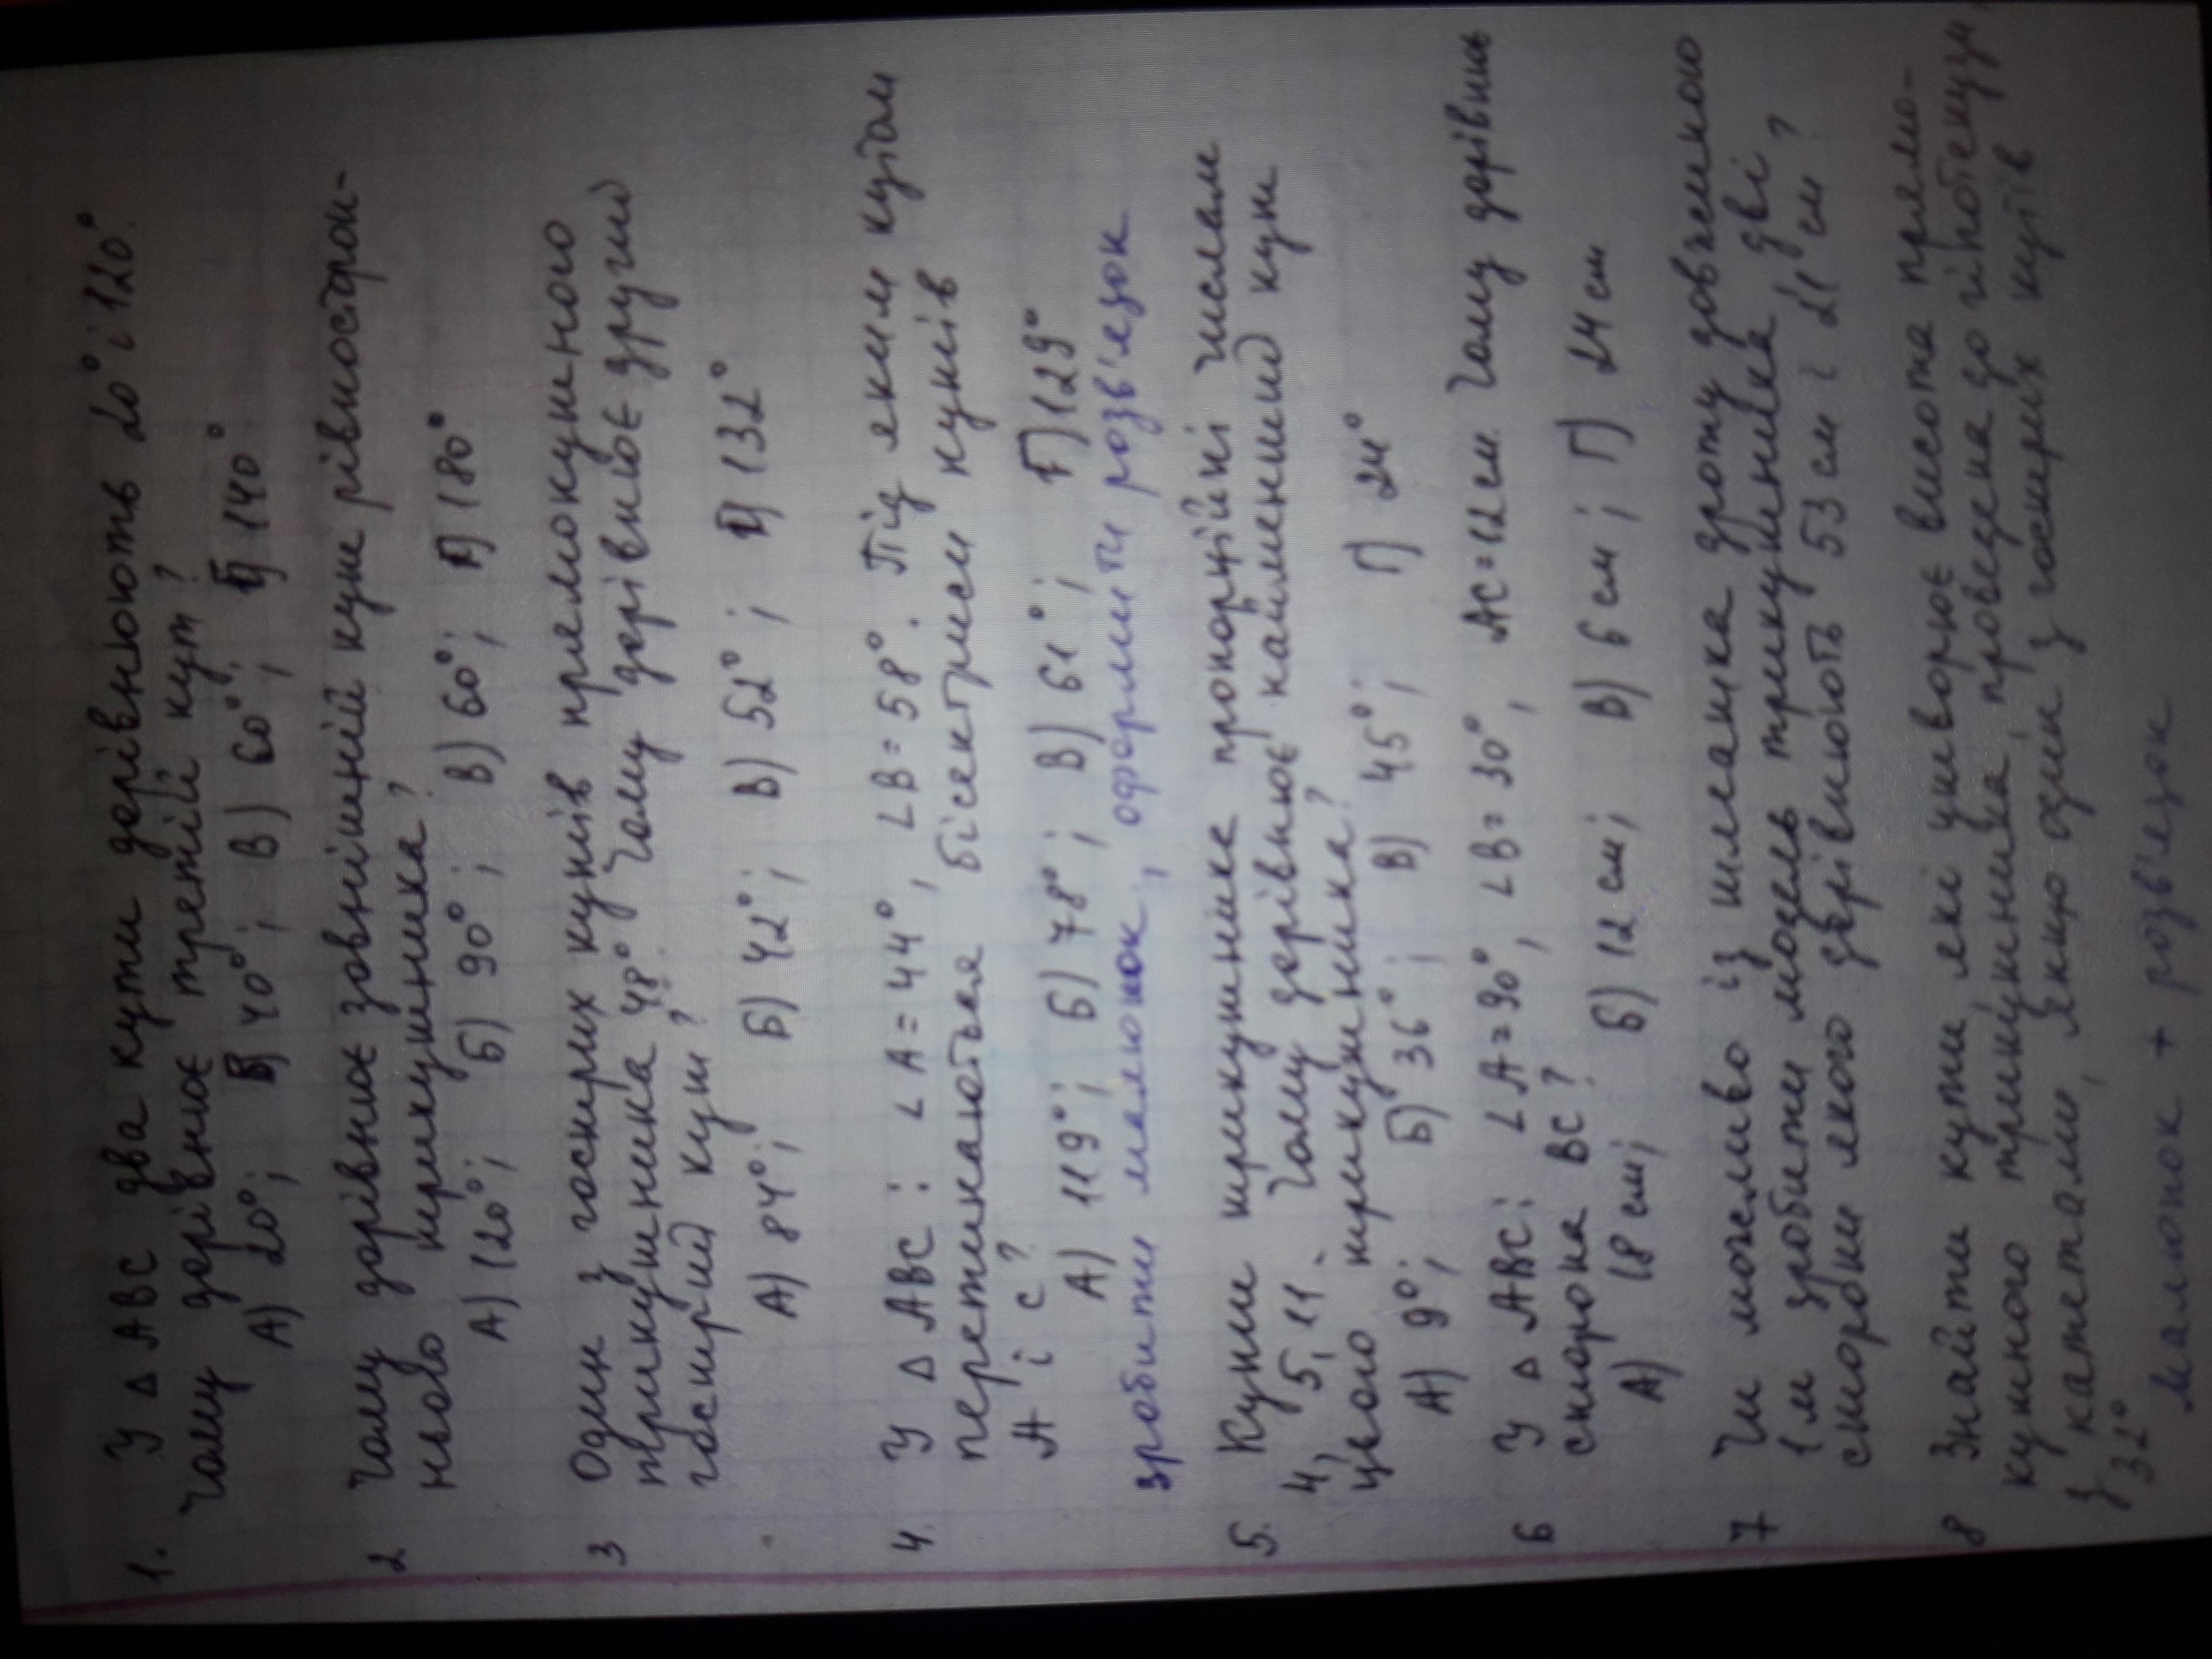 1. У △ ABC два кути дорівнюють 20° і 120°.
Чому дорівнює третій кут?
А) 20°; Б) 40°; В) 60°; Г) 140°
2 Чому дорівнює зовнішній кут рівносторон-
нього трикутника?
А) 120°; Б) 90°; В) 60°; Г) 180°
3 Один з гострих кутів прямокутного
трикутника 48°. Чому дорівнює другий
гострий кут?
А) 84°; Б) 42°; В) 52°; Г) 132°
4. У △ ABC: ∠A = 44°, ∠B = 58°. Під яким кутом
перетинаються бісектриси кутів
A і C?
А) 119°; Б) 78°; В) 61°; Г) 129°
зробити малюнок, оформити розв'язок
5. Кути трикутника пропорційні числам
4, 5, 11. Чому дорівнює найменший кут
цього трикутника?
А) 9°; Б) 36°; В) 45°; Г) 24°
6 У △ ABC: ∠A = 90°, ∠B = 30°, AC = 12 см. Чому дорівнює
сторона BC?
А) 18 см; Б) 12 см; В) 6 см; Г) 24 см
7 Чи можливо із шматка дроту довжиною
1 м зробити модель трикутника, дві
сторони якого дорівнюють 53 см і 21 см?
8 Знайти кути, які утворює висота прямо-
кутного трикутника, проведена до гіпотенузи,
з катетами, якщо один з гострих кутів
32°
малюнок + розв'язок